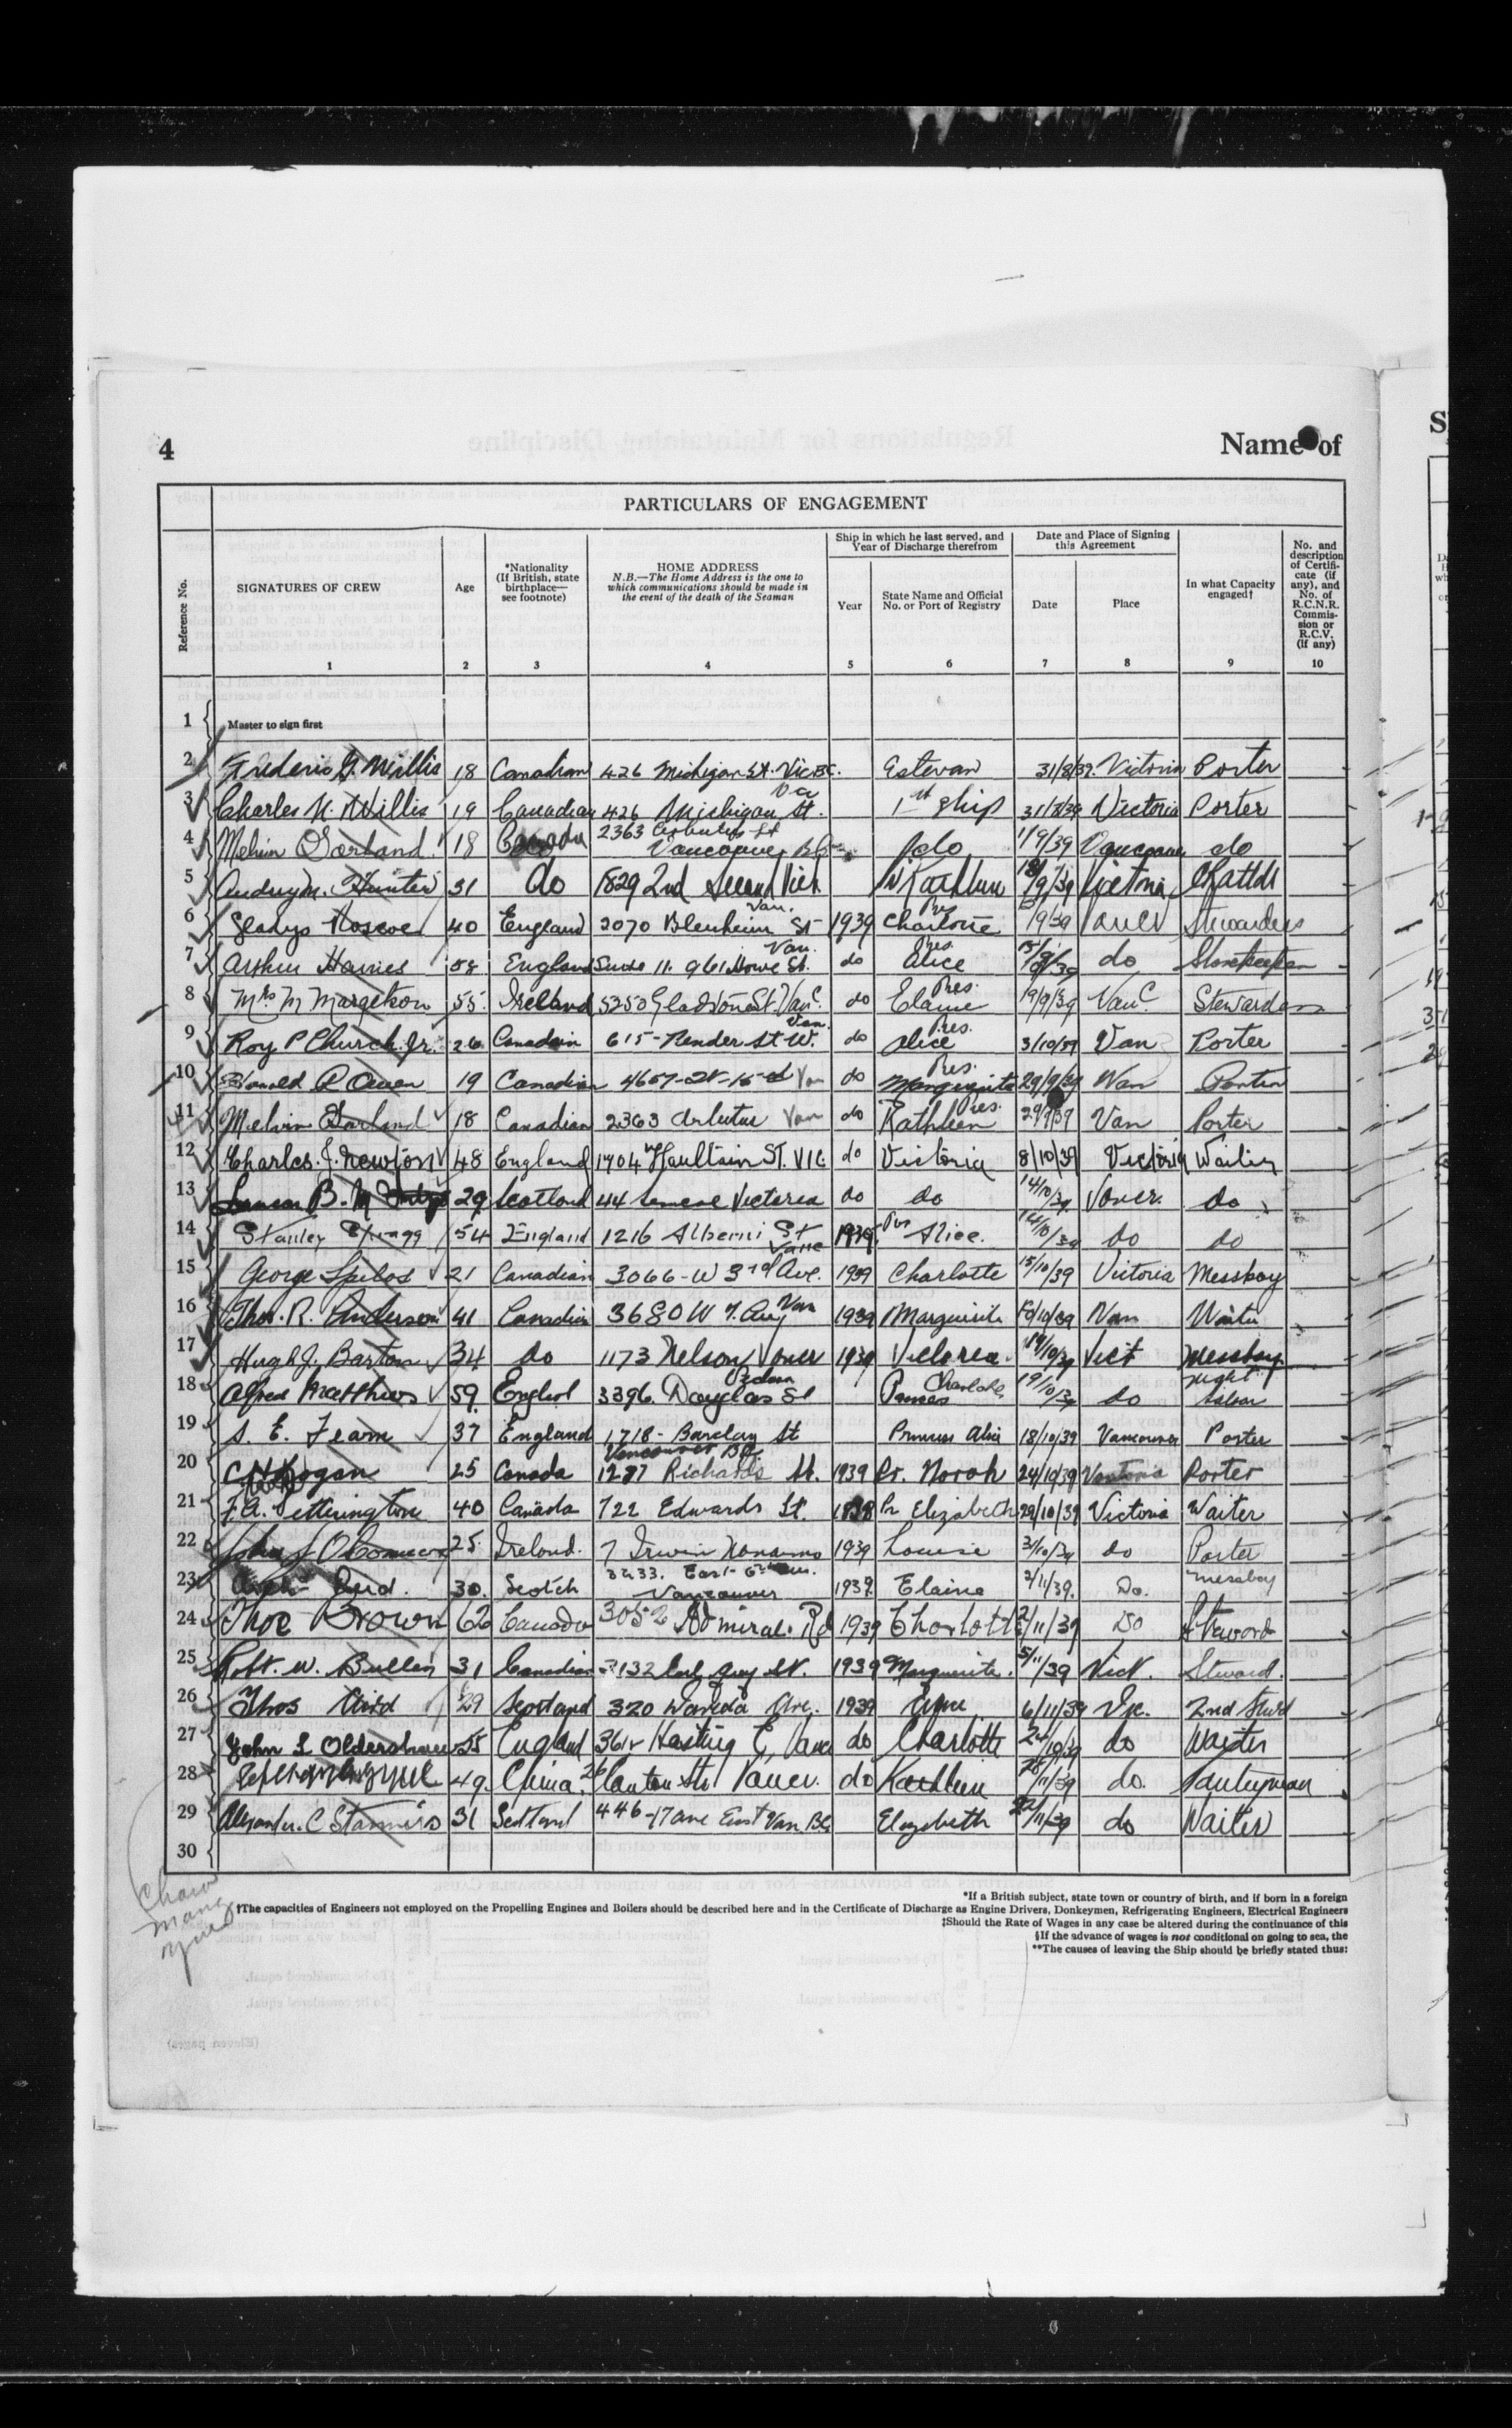 4
Name of
PARTICULARS OF ENGAGEMENT
Reference No.
SIGNATURES OF CREW
Age
*Nationality
(If British, state
birthplace—
see footnote)
HOME ADDRESS
N.B.—The Home Address is the one to
which communications should be made in
the event of the death of the Seaman
Ship in which he last served, and
Year of Discharge therefrom
Year
State Name and Official
No. or Port of Registry
Date and Place of Signing
this Agreement
Date
Place
In what Capacity
engaged†
No. and
description
of Certifi-
cate (if
any), and
No. of
R.C.N.R.
Commis-
sion or
R.C.V.
(if any)
1 2 3 4 5 6 7 8 9 10
1 Master to sign first
2 Frederic G. Willis 18 Canadian 426 Michigan St. Vic BC. Estevan 31/8/39. Victoria Porter
3 Charles N. Willis 19 Canadian 426 Michigan St. 1st ship 31/8/39 Victoria Porter
4 Melvin Garland 18 Canada 2363 Arbutus St Vancouver BC do 1/9/39 Vancouver do
5 Audrey M. Hunter 31 do 1829 2nd Vict Kathleen Victoria
6 Gladys Roscoe 40 England 2070 Blenheim St Van. 1939 Pres Charlotte Vancr Stewardess
7 Arthur Haines 58 England Suite 11. 961 Howe St. Van. do Pres. Alice do Storekeeper
8 Mrs M Margetson 55 Ireland 5250 Gladstone St. Vanc. do Pres. Elaine 19/9/39 Vanc. Stewardess
9 Roy P Church Jr. 26 Canadian 615-Pender St W. Van. do Pres. Alice 3/10/39 Van Porter
10 Ronald R Owen 19 Canadian Van do Pres. Marguerite 29/9/39 Van Porter
11 Melvin Garland 18 Canadian 2363 Arbutus Van do Pres. Kathleen 29/9/39 Van Porter
12 Charles. J. Newton 48 England 1704 Haultain ST. VIC do Victoria 8/10/39 Victoria Waiter
13 29 Scotland 44 Victoria do do 14/10/39 Vancr. do
14 Stanley Spragg 54 England 1216 Alberni St Vanc 1939 Pr Alice. 14/10/39 do do
15 George Spilos 21 Canadian 3066-W 3rd Ave. 1939 Charlotte 15/10/39 Victoria Messboy
16 Thos. R. Anderson 41 Canadian 3680 W 7. Ave Van 1939 Marguerite Van Waiter
17 Hugh J. Barton 34 do 1173 Nelson Vancr 1939 Victoria. 19/10/39 Vict Messboy
18 Alfred Matthews 59 England 3396. Douglas St Princess Charlotte 19/10/39 do night saloon
19 S. E. Fearn 37 England 1718- Barclay St Vancouver BC Princess Alice 18/10/39 Vancouver Porter
20 25 Canada 1287 Richards St. 1939 Pr. Norah 24/10/39 Porter
21 F.A. Pettington 40 Canada 722 Edwards St. 1938 Pr Elizabeth 29/10/39 Victoria Waiter
22 25 Ireland. 7 Irwin Nanaimo 1939 Louise 31/10/39 do Porter
23 30. Scotch 3233. East 6th Ave. Vancouver 1939. Elaine 2/11/39. Do. messboy
24 Thos Brown 62 Canada 3052 Admirals Rd 1939 Charlotte 2/11/39 Do Steward
25 Robt. W. Bullen 31 Canadian 3132 Earl Grey St. 1939 Marguerite. 5/11/39 Vict. Steward.
26 Thos Aird 29 Scotland 320 Ave. 1939 6/11/39 Vic. 2nd Stwd
27 John L Oldershaw 55 England Hastings E, Vanc do Charlotte do Waiter
28 49. China. Canton St. Vancr. do Kathleen do. Pantryman
29 Alexander. C Stannis 31 Scotland 446-17 Ave East Van BC Elizabeth 22/11/39 do Waiter
30
Chaw
Mang
Yuel
*If a British subject, state town or country of birth, and if born in a foreign
†The capacities of Engineers not employed on the Propelling Engines and Boilers should be described here and in the Certificate of Discharge as Engine Drivers, Donkeymen, Refrigerating Engineers, Electrical Engineers
‡Should the Rate of Wages in any case be altered during the continuance of this
§If the advance of wages is not conditional on going to sea, the
**The causes of leaving the Ship should be briefly stated thus: